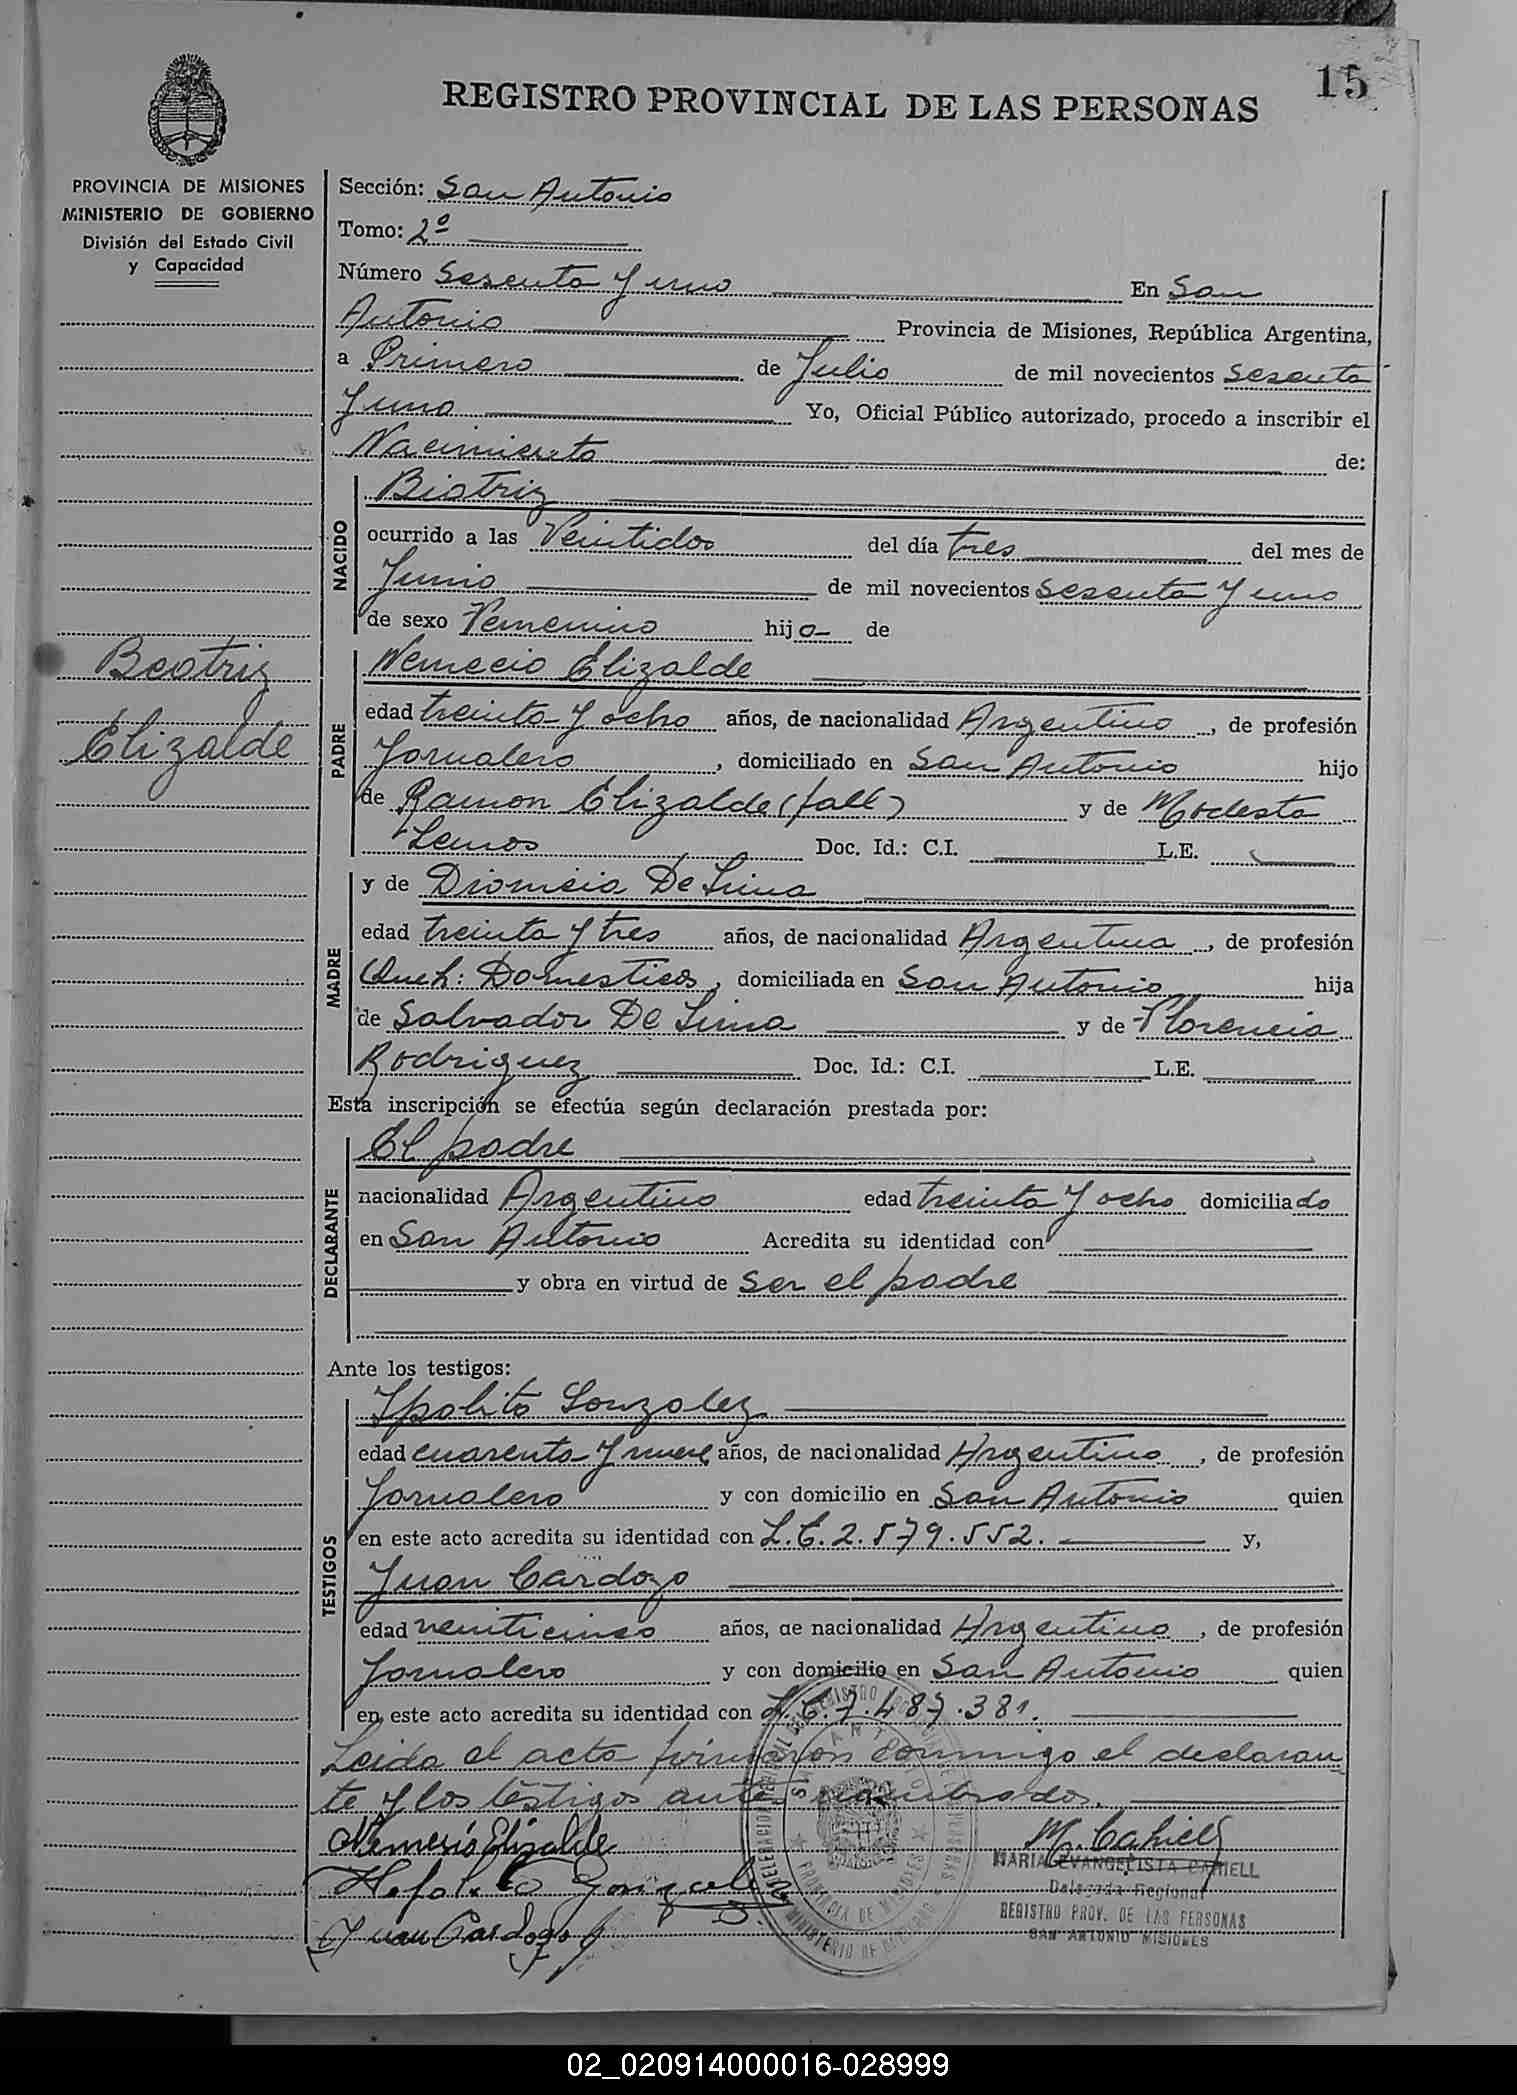 15
REGISTRO PROVINCIAL DE LAS PERSONAS
PROVINCIA DE MISIONES
MINISTERIO DE GOBIERNO
División del Estado Civil
y Capacidad
Beatriz
Elizalde
Sección: San Antonio
Tomo: 2º
Número Sesenta y uno En San
Antonio Provincia de Misiones, República Argentina,
a Primero de Julio de mil novecientos sesenta
y uno Yo, Oficial Público autorizado, procedo a inscribir el
Nacimiento de:
NACIDO
Biatriz
ocurrido a las Veintidos del día tres del mes de
Junio de mil novecientos sesenta y uno
de sexo Femenino hija de
PADRE
Nemecio Elizalde
edad treinta y ocho años, de nacionalidad Argentino, de profesión
Jornalero, domiciliado en San Antonio hijo
de Ramon Elizalde (fall) y de Modesta
Lemos Doc. Id.: C.I. L.E.
MADRE
y de Dionicia De Lima
edad treinta y tres años, de nacionalidad Argentina, de profesión
Queh: Domesticos, domiciliada en San Antonio hija
de Salvador De Lima y de Florencia
Rodriguez Doc. Id.: C.I. L.E.
Esta inscripción se efectúa según declaración prestada por:
DECLARANTE
El padre
nacionalidad Argentino edad treinta y ocho domiciliado
en San Antonio Acredita su identidad con
y obra en virtud de ser el padre
Ante los testigos:
TESTIGOS
Ipolito Gonzalez
edad cuarenta y nueve años, de nacionalidad Argentino, de profesión
Jornalero y con domicilio en San Antonio quien
en este acto acredita su identidad con L.E. 2.579.552. y,
Juan Cardozo
edad veinticinco años, de nacionalidad Argentino, de profesión
Jornalero y con domicilio en San Antonio quien
en este acto acredita su identidad con L.E. 7.487.381.
Leida el acta firmaron conmigo el declaran
te y los testigos antes nombrados.
Nemesio Elizalde
M. Cahiell
MARIA EVANGELISTA CAHIELL
Delegada Regional
REGISTRO PROV. DE LAS PERSONAS
SAN ANTONIO MISIONES
Hipolito Gonzalez
Juan Cardozo
SAN ANTONIO
PROVINCIA DE MISIONES
MINISTERIO DE GOBIERNO
02_020914000016-028999